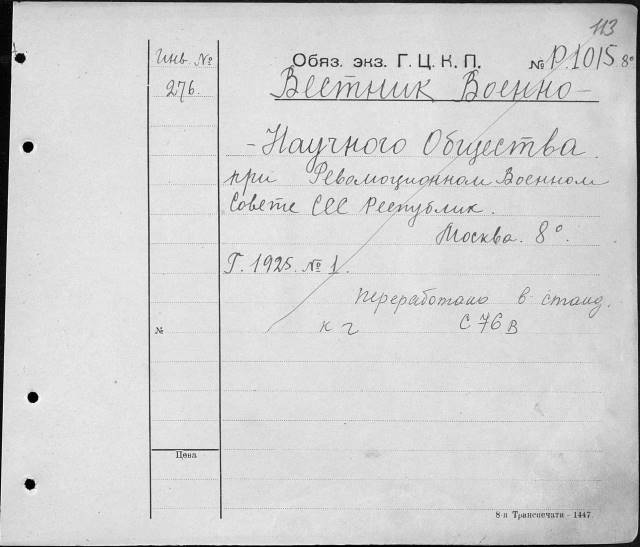 113
Инв. № Обяз. экз. Г. Ц. К. П. № Р.1015 8°
276. Вестник Военно-
-Научного Общества.
при Революционном Военном
Совете ССС Республик.
Москва. 8°.
Г. 1925. № 1.
переработано в станд.
№ к г С 76 в
Цена
8-я Транспечати - 1447